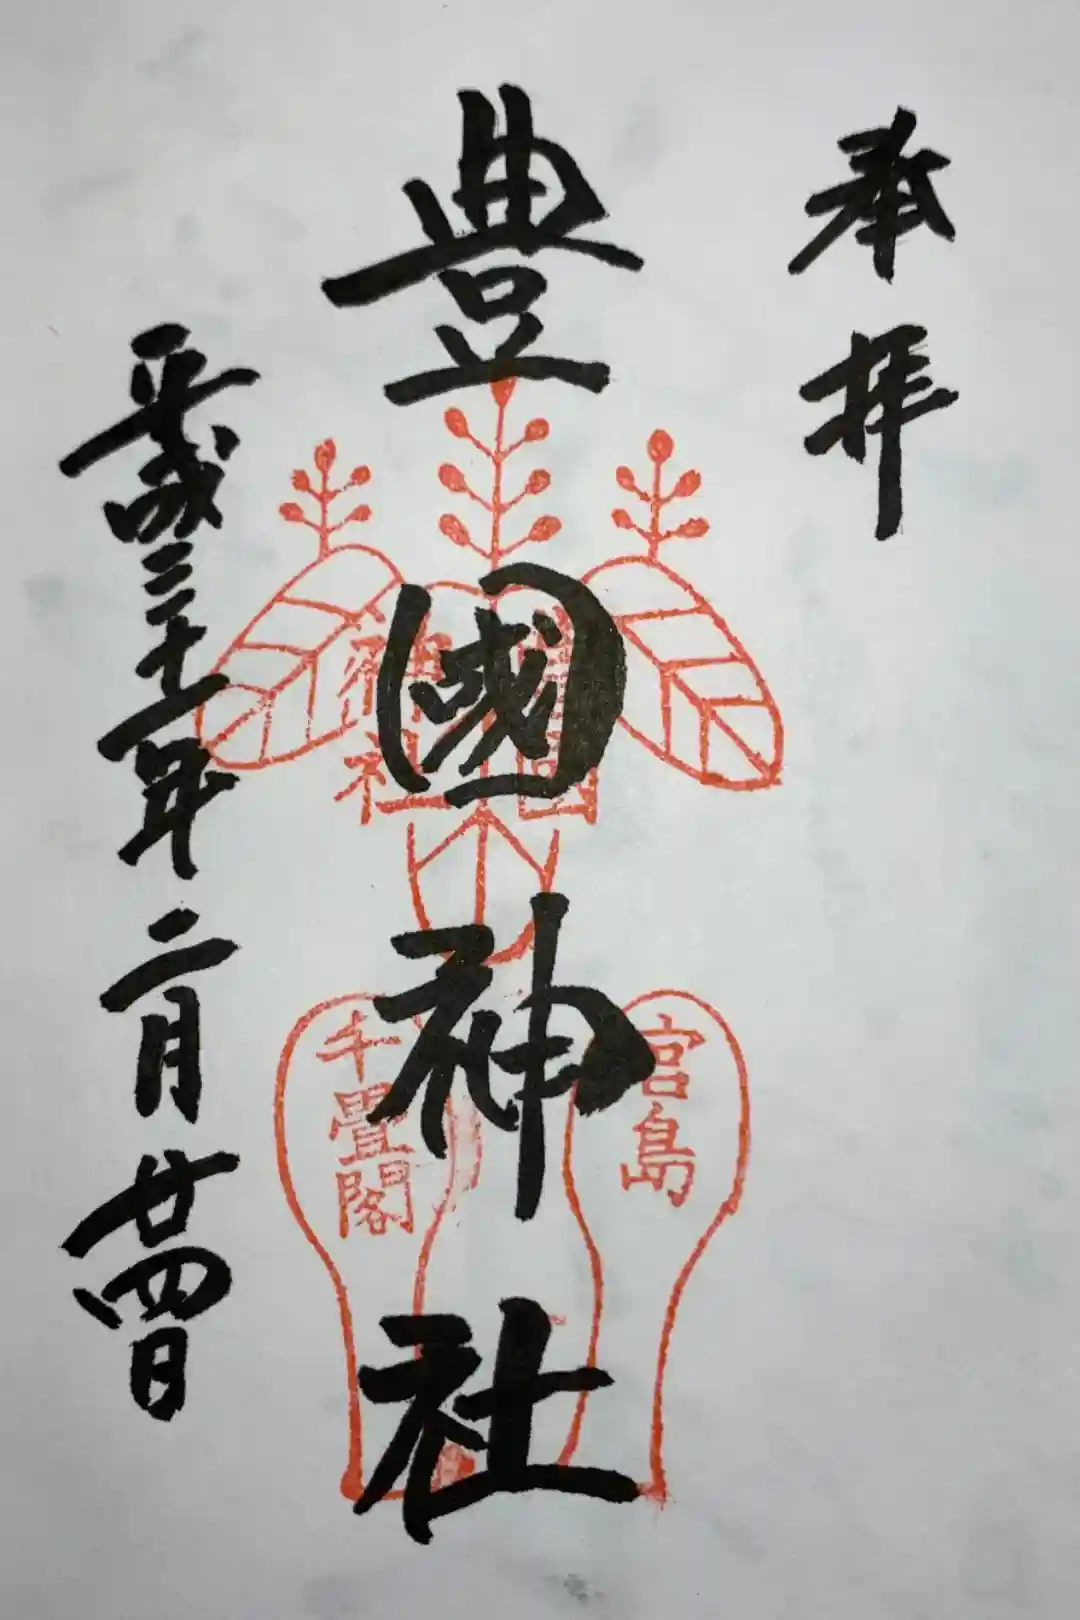 奉拝
豊國神社
平成三十一年二月廿四日
豊國
神社
宮島
千畳閣